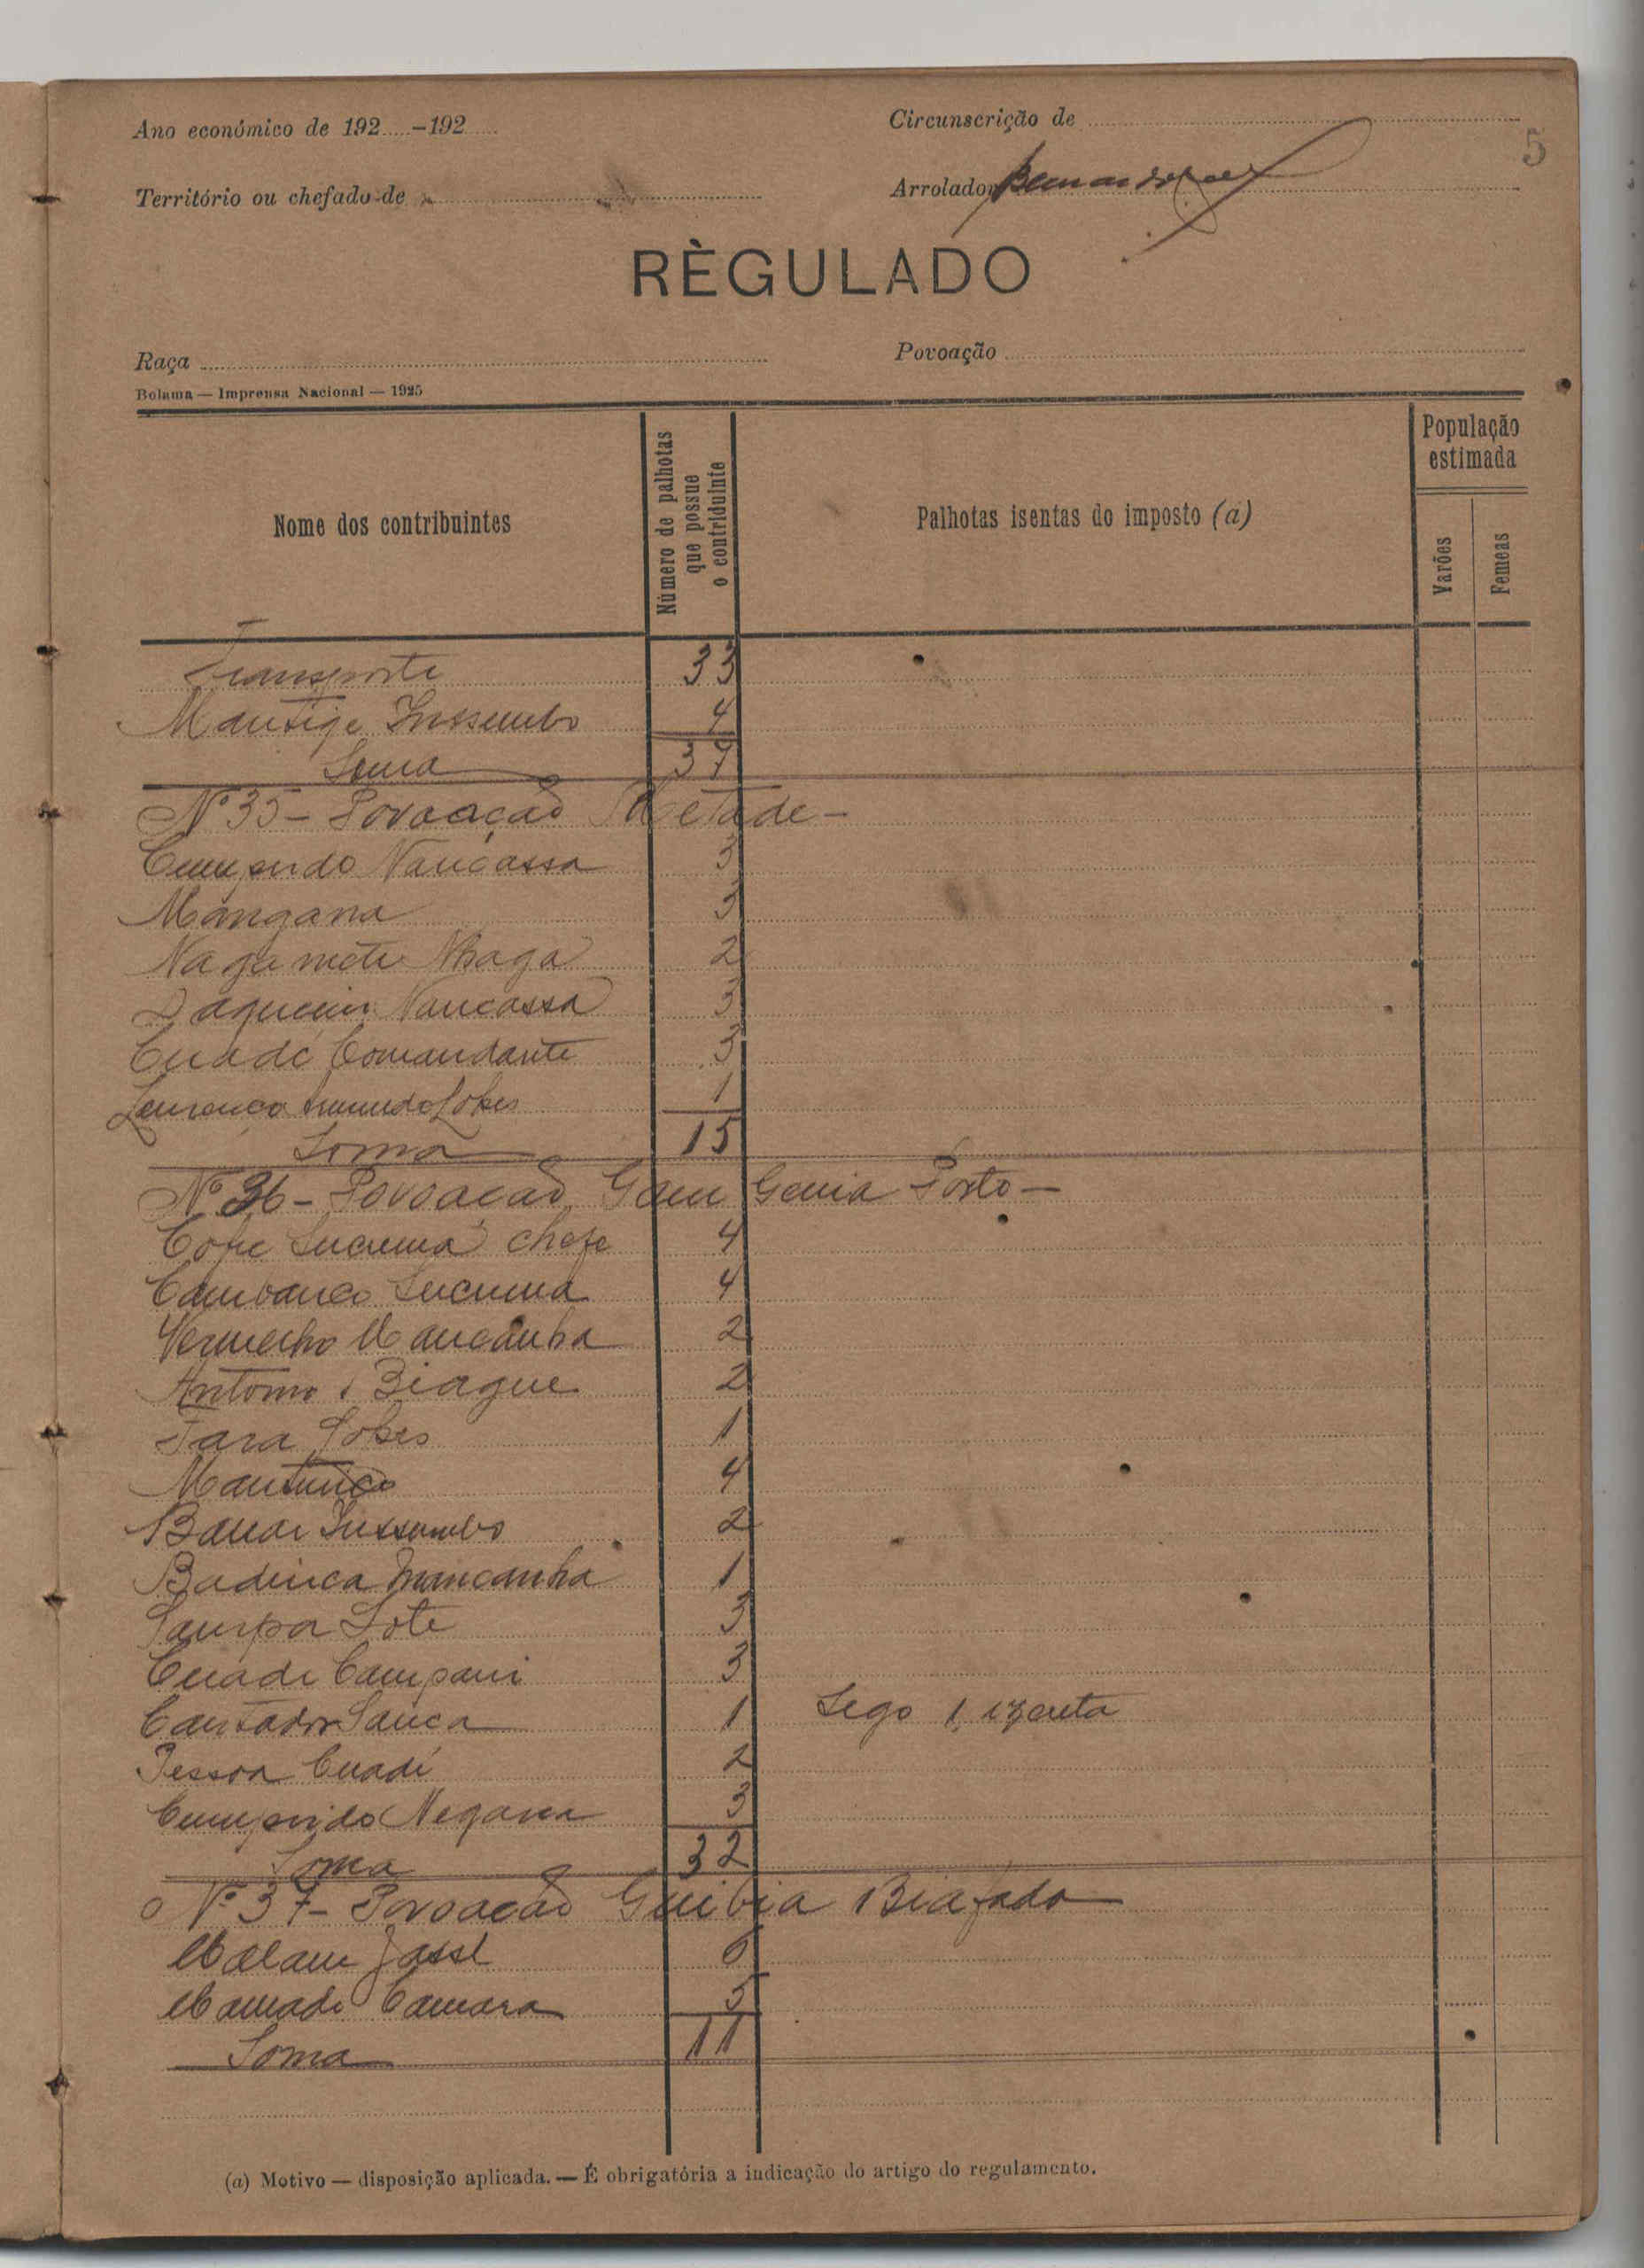 Ano económico de 192.....-192.....
Circunscrição de
5
Território ou chefado de
Arrolador
RÈGULADO
Raça
Povoação
Bolama — Imprensa Nacional — 1925
Nome dos contribuintes
Número de palhotas que possue o contriduinte
Palhotas isentas do imposto (a)
População estimada
Varões
Femeas
Transporte 33
Mantige Inssumbo 4
Soma 37
Nº 35 - Povoação Metade -
Cumprido Nancassa 3
Mangana 3
Naga mete Nhaga 2
Nancassa 3
Cuadé Comandante 3
Lourenço Lopes 1
Soma 15
Nº 36 - Povoação Gam Genia Porto -
Sucuma chefe 4
Sucuma 4
Vermelho Mancanha 2
Antonio Biague 2
Tara Lopes 1
4
Inssumbo 2
Badinca Mancanha 1
Sampa Sote 3
Cuade Campani 3
Cantador Sanca 1 Sego 1, izenta
Pessoa Cuadi 2
Cumprido Negana 3
Soma 32
Nº 37 - Povoação Guibia Biafada
Malam Jassi 6
Mamadi Camara 5
Soma 11
(a) Motivo — disposição aplicada. — É obrigatória a indicação do artigo do regulamento.